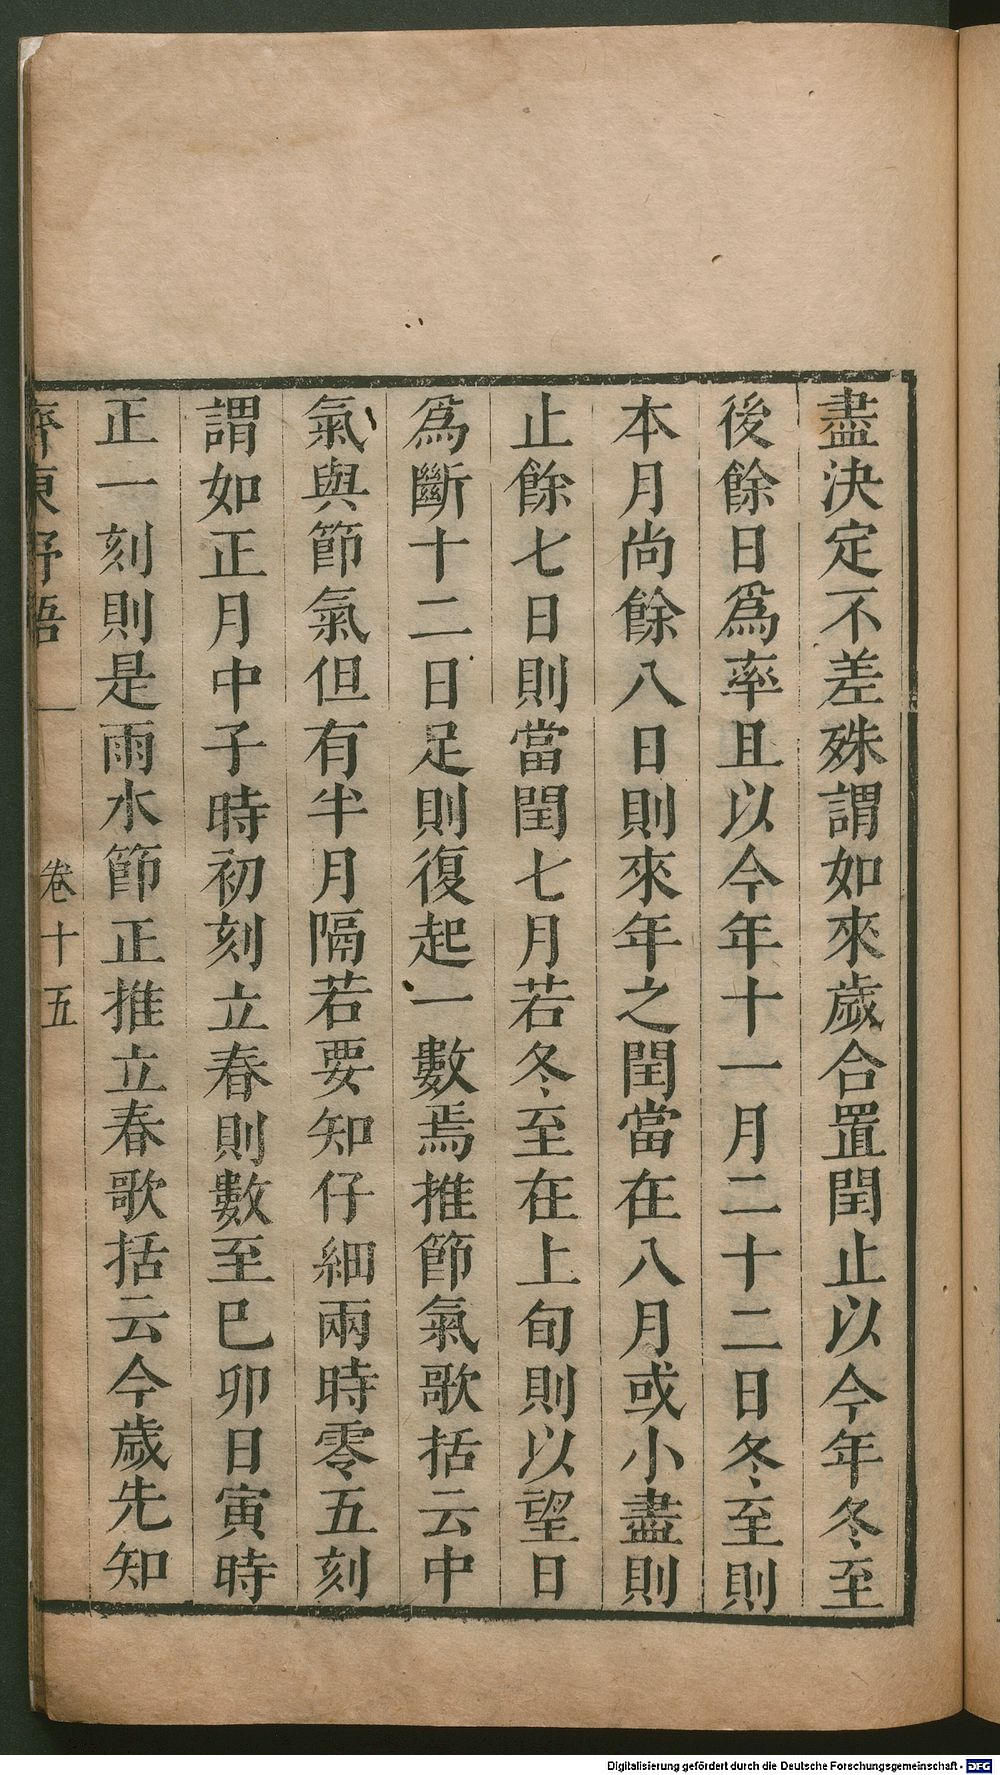 盡決定不差殊謂如來歲合置閏止以今年冬至
後餘日爲率且以今年十一月二十二日冬至則
本月尚餘八日則來年之閏當在八月或小盡則
止餘七日則當閏七月若冬至在上旬則以望日
爲斷十二日足則復起一數焉推節氣歌括云中
氣與節氣但有半月隔若要知仔細兩時零五刻
謂如正月中子時初刻立春則數至巳卯日寅時
正一刻則是雨水節正推立春歌括云今歲先知
齊東野語
卷十五
Digitalisierung gefördert durch die Deutsche Forschungsgemeinschaft - DFG